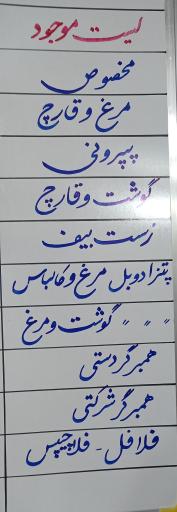 لیست موجود
مخصوص
مرغ و قارچ
پپرونی
گوشت و قارچ
رست بیف
پیتزا دوبل مرغ و کالباس
" " " گوشت و مرغ
همبر گردستی
همبرگر شرکتی
فلافل - فلاچیپس